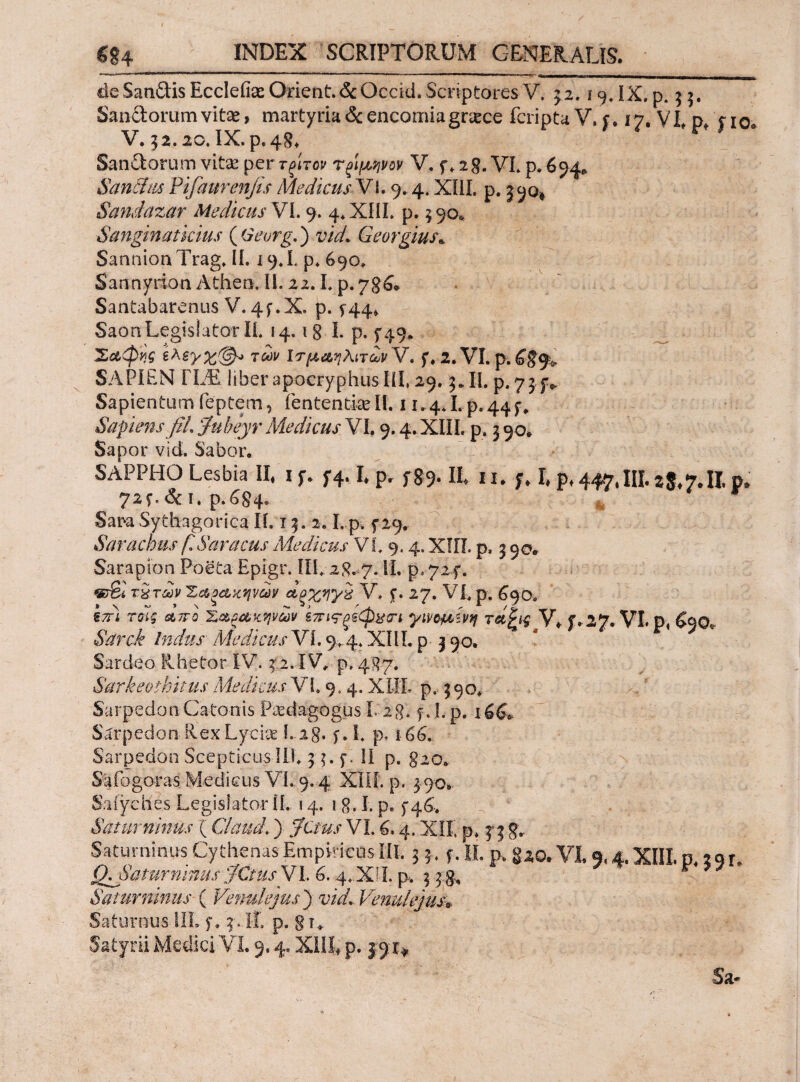 684 INDEX SCRIPTORUM GENERALIS.
de Sanctis Ecclesiæ Orient. & Occid. Scriptores V. 32. 19. IX. p. 33.
Sanctorum vitæ, martyria & encomia græce scripta V. 5. 17. VI. p. 510.
V. 32. 20. IX. p. 48.
Sanctorum vitæ per τρίτον τρίμηνον V. 5. 28. VI. p. 694.
Sanctus Pisaurensis Medicus VI. 9. 4. XIII. p. 390.
Sandazar Medicus VI. 9. 4. XIII. p. 390.
Sanginaticius (Georg.) vid. Georgius.
Sannion Trag. II. 19. I. p. 690.
Sannyrion Athen. II. 22. I. p. 786.
Santabarenus V. 45. X. p. 544.
Saon Legislator II. 14. 18 I. p. 549.
Σαφὴς ἔλεγχος τῶν Ισμαηλιτῶν V. 5. 2. VI. p. 689.
SAPIENTIÆ liber apocryphus III, 29. 3. II. p. 735.
Sapientum septem, sententiæ II. 11. 4. I. p. 445.
Sapiens fil. Jubeyr Medicus VI. 9. 4. XIII. p. 390.
Sapor vid. Sabor.
SAPPHO Lesbia II, 15. 54. I. p. 589. II. 11. 5. I. p. 447. III. 28. 7. II. p.
725. & I. p. 684.
Sara Sythagorica II. 13. 2. I. p. 529.
Sarachus s. Saracus Medicus VI. 9. 4. XIII. p. 390.
Sarapion Poëta Epigr. III. 28. 7. II. p. 725.
περὶ τȣ τῶν Σαρακηνῶν ἀρχηγȣ V. 5. 27. VI. p. 690.
ἐπὶ τοῖς ἀπὸ Σαρακηνῶν ἐπιστρέφȣσι γινομένη τάξις V. 5. 27. VI. p. 690.
Sarck Indus Medicus VI. 9. 4. XIII. p 390.
Sardeo Rhetor IV. 32. IV. p. 487.
Sarkeothitus Medicus VI. 9. 4. XIII. p. 390.
Sarpedon Catonis Pædagogus I. 28. 5. I. p. 166.
Sarpedon Rex Lyciæ I. 28. 5. I. p. 166.
Sarpedon Scepticus III. 33. 5. II p. 820.
Safogoras Medicus VI. 9. 4 XIII. p. 390.
Sasyches Legislator II. 14. 18. I. p. 546.
Saturninus (Claud.) JCtus VI. 6. 4. XII. p. 338.
Saturninus Cythenas Empiricus III. 33. 5. II. p. 820. VI. 9. 4. XIII. p. 391.
Q. Saturninus JCtus VI. 6. 4. XII. p. 338.
Saturninus (Venulejus) vid. Venulejus.
Saturnus III. 5. 3. II. p. 81.
Satyrii Medici VI. 9. 4. XIII. p. 391.
Sa-